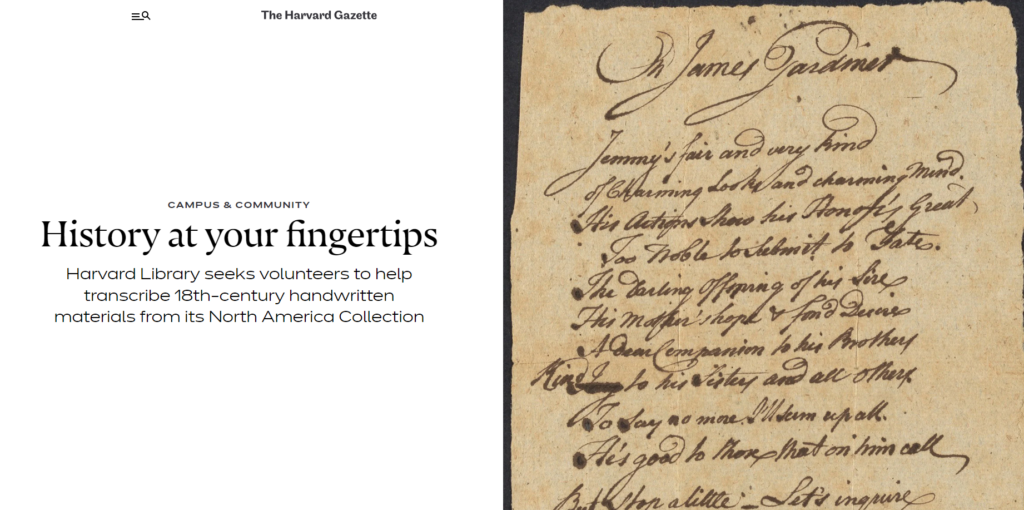 The Harvard Gazette
CAMPUS & COMMUNITY
History at your fingertips
Harvard Library seeks volunteers to help
transcribe 18th-century handwritten
materials from its North America Collection
On James Gardiner
Jemmy's fair and very kind
of Charming Looks and charming Mind.
His Actions Show his Honor's Great,
Too Noble to Submit to Fate.
The Darling Offspring of his Sire
His Mother's hope & fond Desire
A dear Companion to his Brothers
Kind to his Sisters and all others
To Say no more I'll sum up all.
He's good to those that on him call
But stop a little – Let's inquire